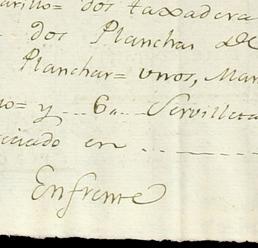 arillo= dos taxadera
dos Planchas de
Planchar= unos, Man
no= y . . 6,, Servilleta
en . _ _ _ _
Enfrente